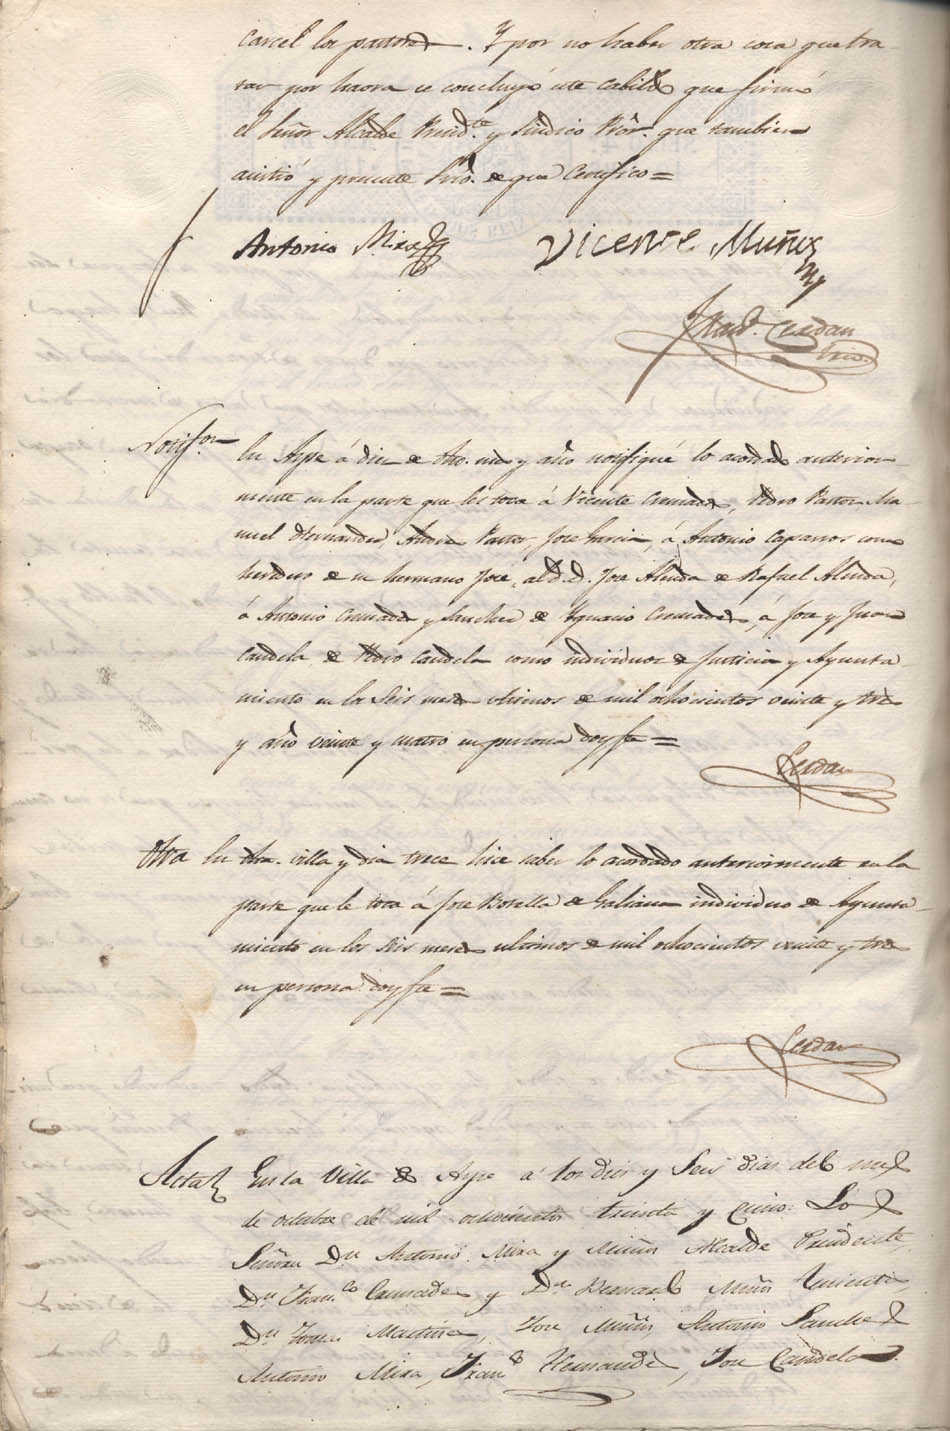 carcel los pastores. Y por no haber otra cosa que tra
tar por haora se concluyó este Cabildo que firmó
el Señor Alcalde Presid.te y Sindico Pror. que tambien
asistió y presente Srio. de que Certifico =
Antonio Mira
Vicente Muñoz
Fran.co Cerdan
Srio.
Notif.on
En Aspe á diez de dho. mes y año notifiqué lo acordado anterior
mente en la parte que les toca á Vicente Cremades, Pedro Pastor, Ma
nuel Hernandez, Andres Pastor, Jose Garcia, á Antonio Caparros como
heredero de su hermano Jose, al D. D. Jose Almda de Rafael Almda,
á Antonio Cremades y Sanchez de Ygnacio Cremades, á Jose y Juan
Candela de Pedro Candela como individuos de Justicia y Ayunta
miento en los Seis meses ultimos de mil ochocientos veinte y tres
y año veinte y cuatro en persona doy fe =
Cerdan
Otra En dha. villa y dia trece hice saber lo acordado anteriormente en la
parte que le toca á Jose Botella de Galiana individuo de Ayunta
miento en los Seis meses ultimos de mil ochocientos veinte y tres
en persona doy fe =
Cerdan
Acta En la Villa de Aspe á los dies y Seis dias del mes
de octubre de mil ochocientos treinta y Cinco: Los
Señores Dn. Antonio Mira y Muñoz Alcalde Presidente,
Dn. Fran.co Cremades y Dn. Bernardo Muñoz Tenientes,
Dn. Tomas Martinez, Jose Muñoz Antonio Sanchez
Antonio Mira, Fran.co Hernandez, Jose Candela